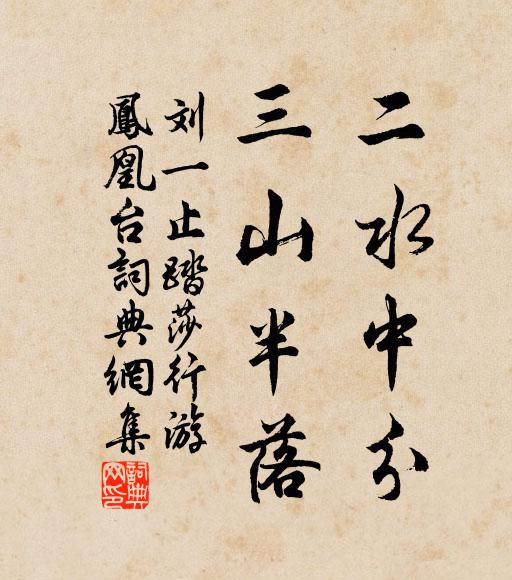 二水中分
三山半落
刘一止踏莎行游
鳳凰台詞典網集
詞典
网印